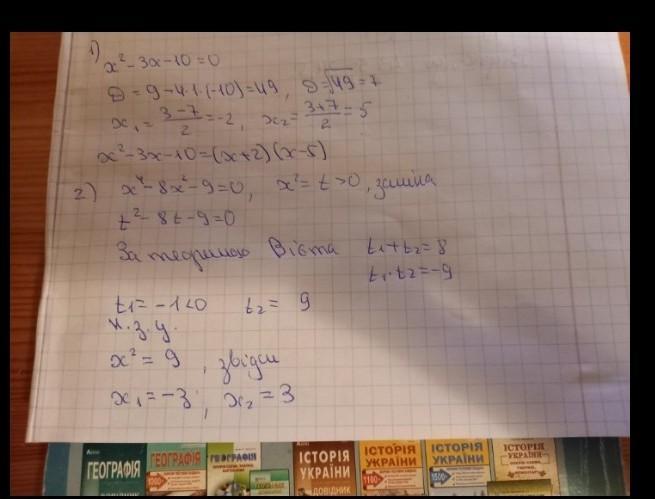 1)
x² - 3x - 10 = 0
D = 9 - 4·1·(-10) = 49, D = √49 = 7
x₁ = (3-7)/2 = -2, x₂ = (3+7)/2 = 5
x² - 3x - 10 = (x+2)(x-5)
2) x⁴ - 8x² - 9 = 0, x² = t > 0, заміна
t² - 8t - 9 = 0
За теоремою Вієта t₁ + t₂ = 8
t₁ · t₂ = -9
t₁ = -1 < 0 t₂ = 9
н.з.у.
x² = 9, звідси
x₁ = -3; x₂ = 3
ГЕОГРАФІЯ
ГЕОГРАФІЯ
ГЕОГРАФІЯ
ІСТОРІЯ УКРАЇНИ
ДОВІДНИК
ІСТОРІЯ УКРАЇНИ
1100
ІСТОРІЯ УКРАЇНИ
1500
ІСТОРІЯ УКРАЇНИ